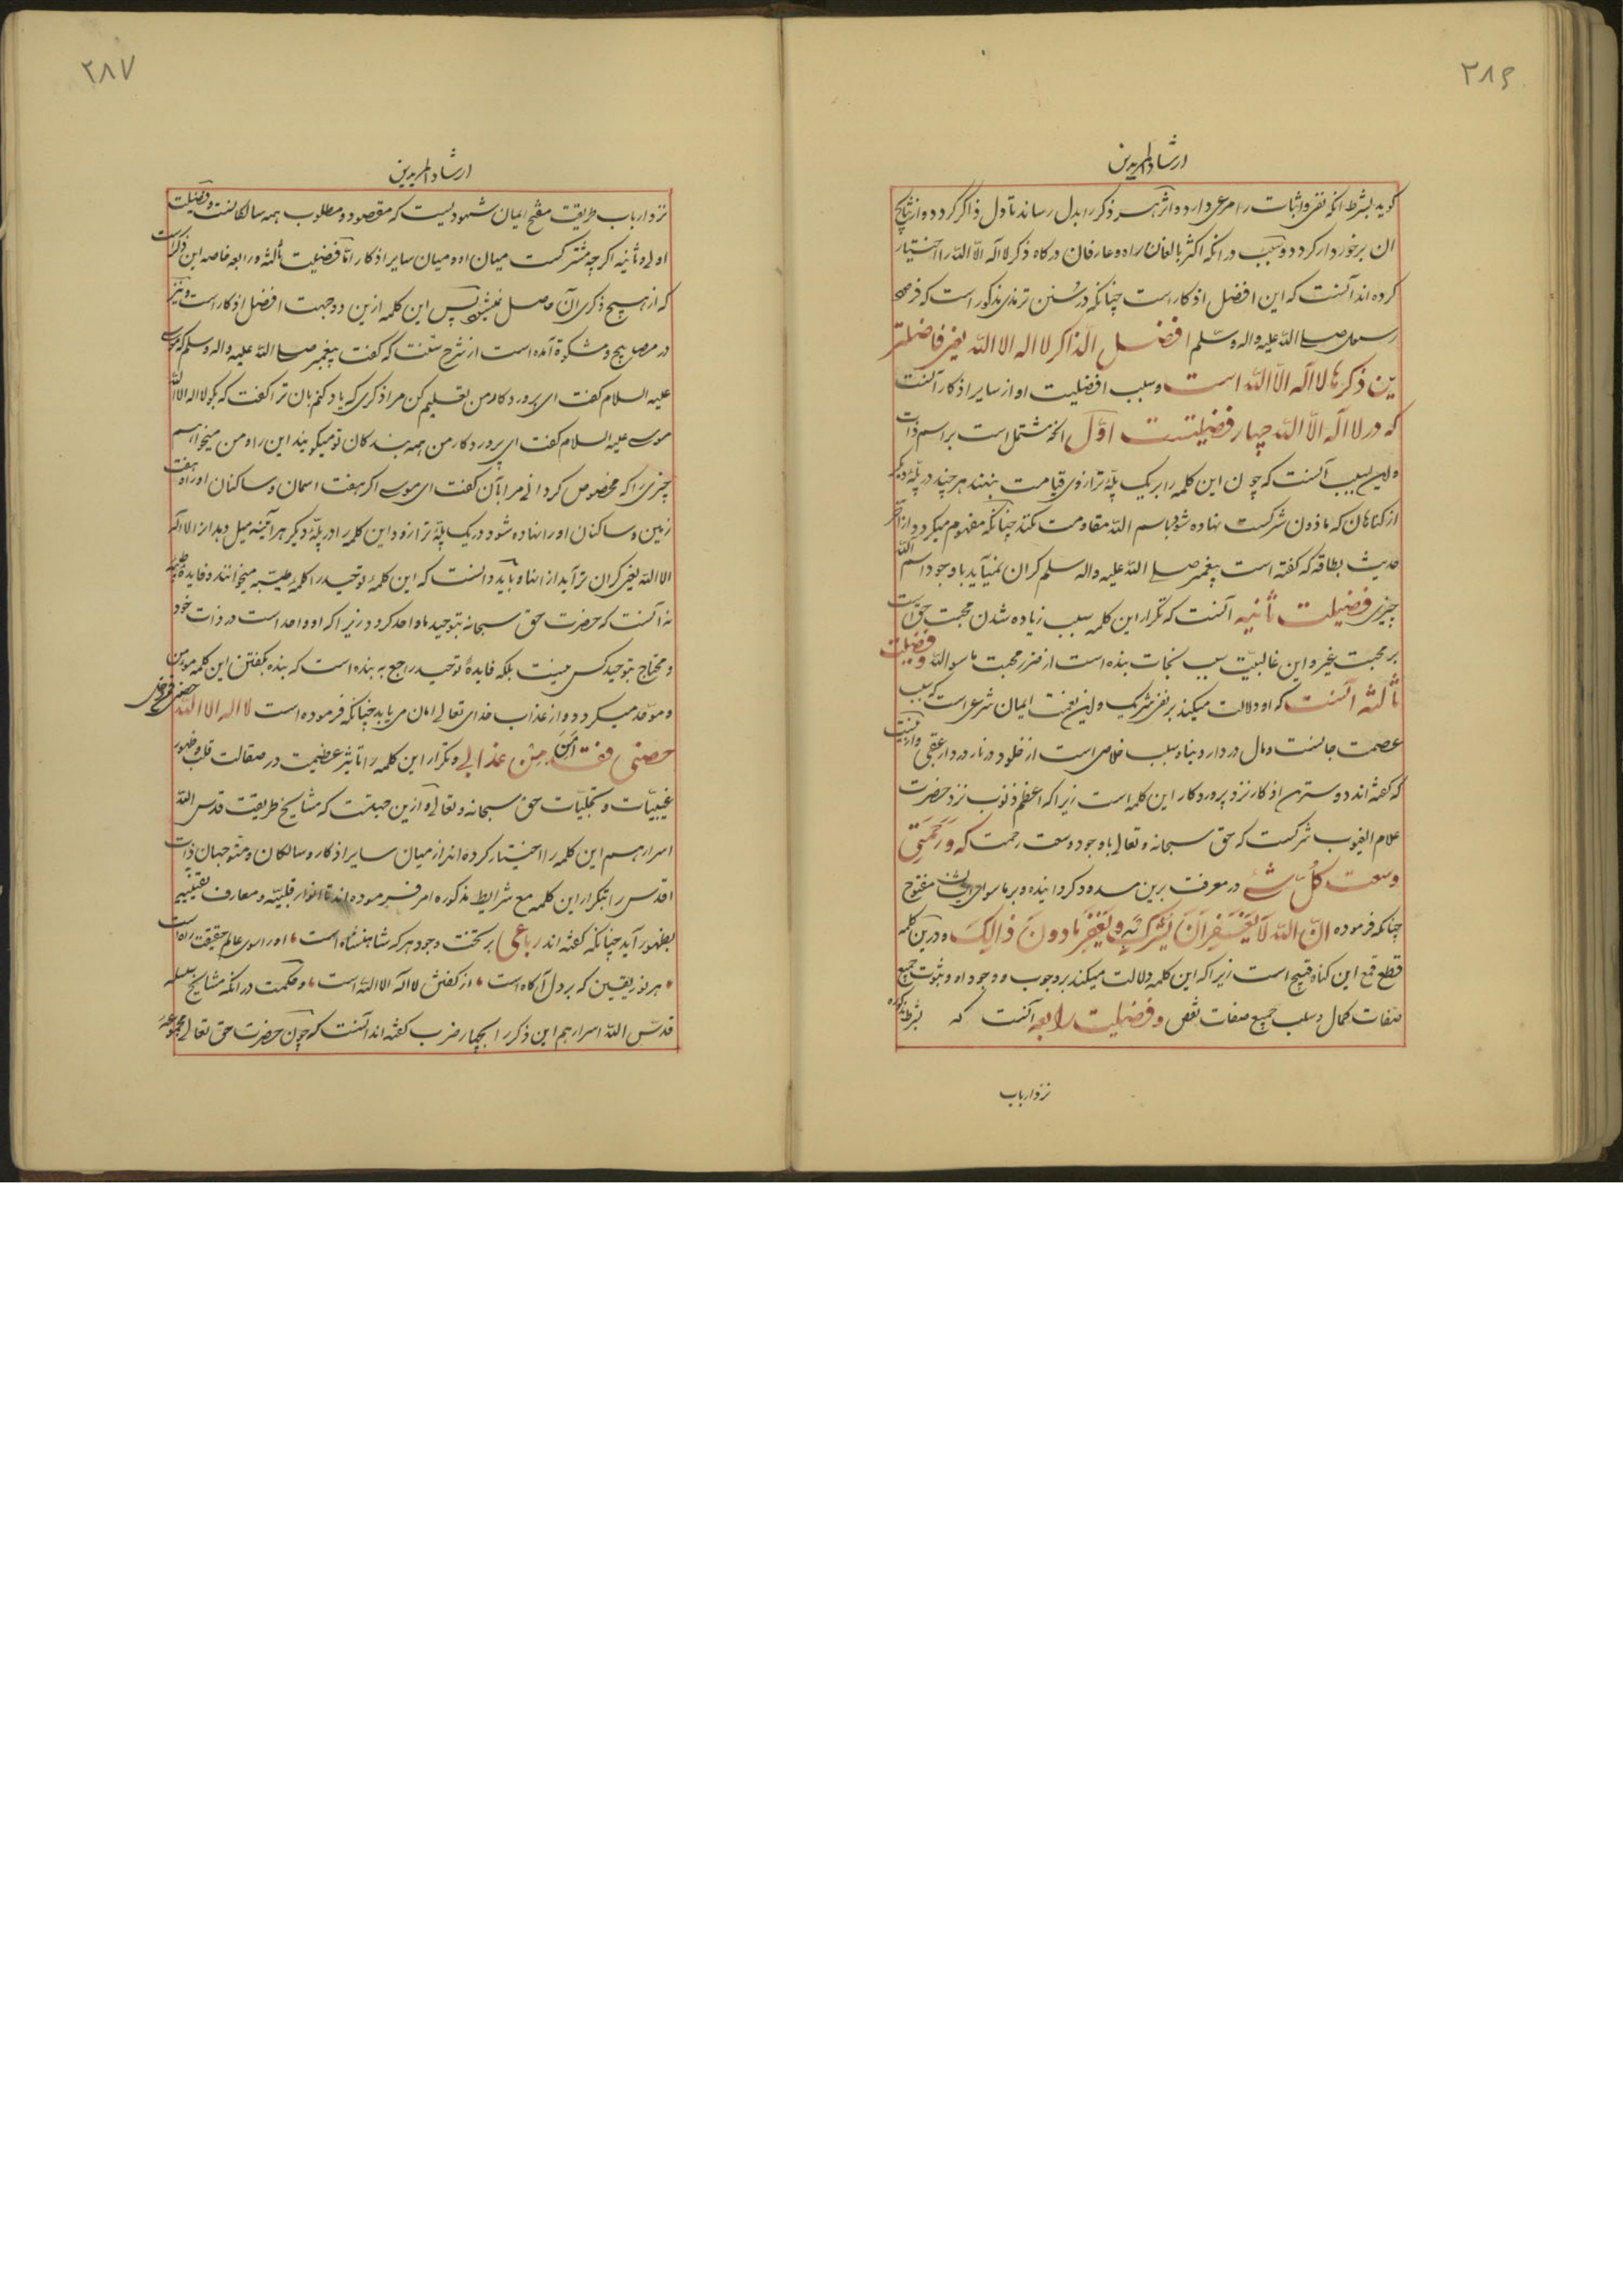 ۲۸۶
ارشاد المریدین
کوید بشرط انکه نفی و اثبات را مرعی دارد و اثر هر ذکر را بدل رساند تا دل ذاکر کردد و از نتایج
ان برخوردار کردد و سبب در انکه اکثر بالغان راه و عارفان درکاه ذکر لا اله الا الله را اختیار
کرده اند آنست که این افضل اذکار است چنانکه در سنن ترمذی مذکور است که فرمود
رسول صلی الله علیه و اله و سلم افضل الذاکر لا اله الا الله یعنی فاضلتر
ین ذکرها لا اله الا الله است و سبب افضلیت او از سایر اذکار آنست
که در لا اله الا الله چهار فضیلتست اول انکه مشتمل است بر اسم ذات
و این سبب آنست که چون این کلمه را بر یک پلّه ترازوی قیامت بنهند هر چند در پلّه دیکر
از کناهان که مادون شرکست نهاده شود باسم الله مقاومت نکند چنانکه مفهوم میکردد از
حدیث بطاقه که کفته است پیغمبر صلی الله علیه و اله و سلم کران نمیآید با وجود اسم الله
چیزی فضیلت ثانیه آنست که تکرار این کلمه سبب زیاده شدن محبت حق است
بر محبت غیر و این غالبیّت سبب نجات بنده است از ضرر محبت ما سوالله و فضیلت
ثالثه آنست که او دلالت میکند بر نفی شریک و این نعمت ایمان شرعی است که سبب
عصمت جانست و مال در دار دنیا و سبب خلاص است از خلود در نار در دار عقبی و از اینست
که کفته اند دوسترین اذکار نزد پروردکار این کلمه است زیرا که اعظم ذنوب نزد حضرت
علام الغیوب شرکست که حق سبحانه و تعالی با وجود وسعت رحمت که وَرَحْمَتِی
وسعت کلّ شیء در معرفت برین مسدود کردانیده و بر ماسوای مفتوح
چنانکه فرموده انّ الله لا یغفر ان یشرک به و یغفر مادون ذالک و درین کلمه
قطع قمع این کناه قبیح است زیرا که این کلمه دلالت میکند بر وجوب وجود او و ثبوت جمیع
صفات کمال و سلب جمیع صفات نقص و فضیلت رابعه آنست که بشرط مذکوره
نزد ارباب
۲۸۷
ارشاد المریدین
نزد ارباب طریقت مفتح ایمان شهودیست که مقصود و مطلوب همه سالکانست و فضیلت
اولی و ثانیه اکرچه مشترکست میان او و میان سایر اذکار امّا فضیلت ثالثه و رابعه خاصه این ذکر است
که از هیچ ذکری آن حاصل نمیشود پس این کلمه ازین دو جهت افضل اذکار است و نیز
در مصابیح و مشکوة آمده است از شرح سنّت که کفت پیغمبر صلی الله علیه و اله و سلم که موسی
علیه السلام کفت ای پروردکار من تعلیم کن مرا ذکری که یاد کنم بان ترا کفت که بکو لا اله الا الله
موسی علیه السلام کفت ای پروردکار من همه بندکان تو میکویند این را و من میخواهم
چیزیرا که مخصوص کردانی مرا بآن کفت ای موسی اکر هفت اسمان و ساکنان او را و هفت
زمین و ساکنان او را نهاده شود در یک پلّه ترازو و این کلمه را در پلّه دیکر هر آینه میل دهد ار لا اله
الا الله یعنی کران تر آید از انها و باید دانست که این کلمهٔ توحید را کلمهٔ طیّبه میخوانند و فایدهٔ
نه آنست که حضرت حق سبحانه بتوحید ما واحد کردد زیرا که او واحد است در ذات خود
و محتاج بتوحید کس نیست بلکه فایدهٔ توحید راجع به بنده است که بنده بکفتن این کلمه مومن
و موحّد میکردد و از عذاب خدای تعالی امان می یابد چنانکه فرموده است لا اله الا الله حصنی فمن دخل
حصنی فقد اَمِنَ مِنْ عذابی و تکرار این کلمه را تاثیر عظیمت در صقالت قلب و ظهور
غیبیّات و تجلّیات حق سبحانه و تعالی و ازین جهتست که مشایخ طریقت قدس الله
اسرارهم این کلمه را اختیار کرده اند از میان سایر اذکار و سالکان و متوجهان ذات
اقدس را بتکرار این کلمه مع شرایط مذکوره امر فرموده اند تا انوار قلبیّه و معارف یقینیه
بظهور آید چنانکه کفته اند رباعی بر تخت وجود هر که شاهنشاه است ، او را سوی عالم حقیقت راه است
، هر نور یقین که بر دل آکاه است ، از کفتن لا اله الا الله است ، و حکمت در انکه مشایخ سلسله
قدّس الله اسرارهم این ذکر را بچهار ضرب کفته اند آنست که چون حضرت حق تعالی مجموعه